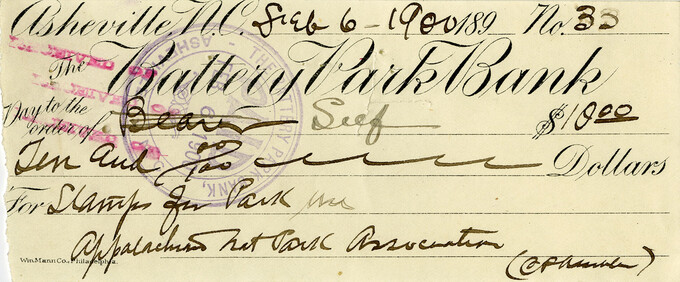 Asheville, N.C. Feb 6 - 1900 189 No. 33
The Battery Park Bank
Pay to the order of Bearer Self $10.00
Ten and 00/100 Dollars
For Stamps for Park use
Appalachian Nat Park Association
Wm Mann Co., Philadelphia.
THE BATTERY PARK BANK,